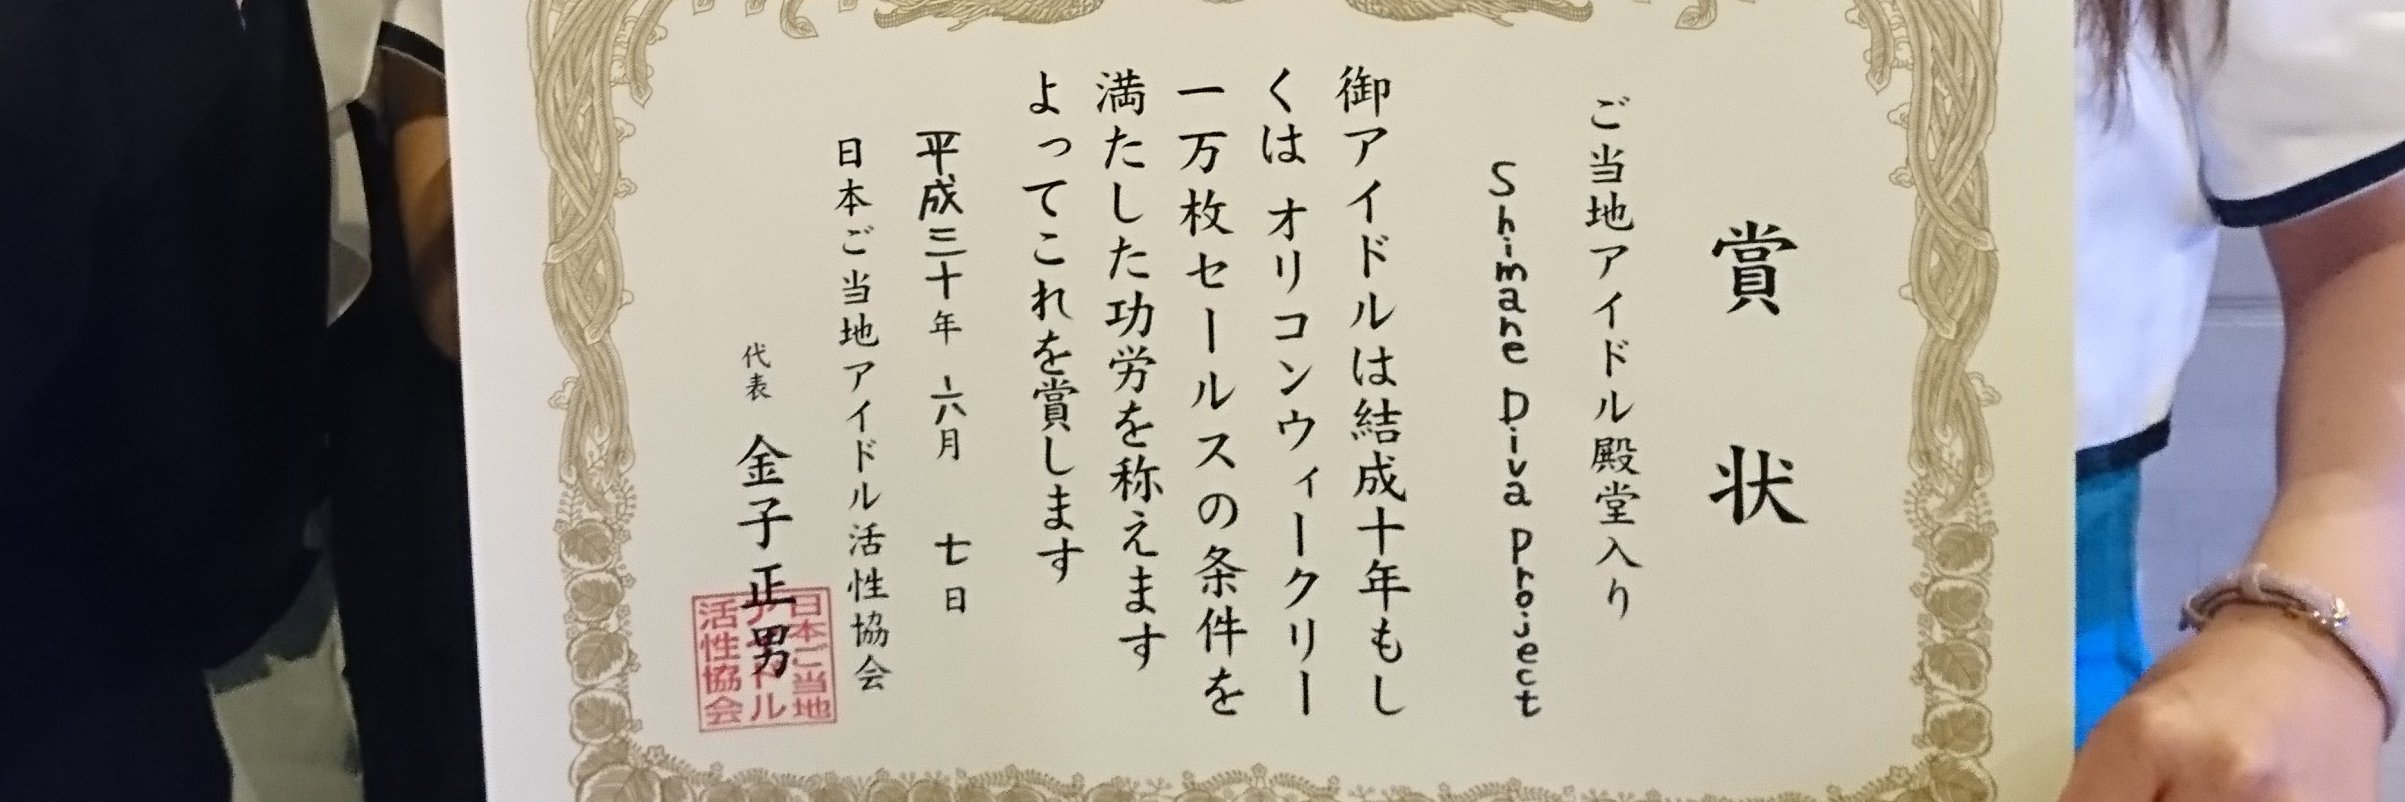 賞状
ご当地アイドル殿堂入り
Shimane Diva Project
御アイドルは結成十年もし
くは オリコンウィークリー
一万枚セールスの条件を
満たした功労を称えます
よってこれを賞します
平成三十年 六月 七日
日本ご当地アイドル活性協会
代表 金子正男
日本ご当地
アイドル
活性協会